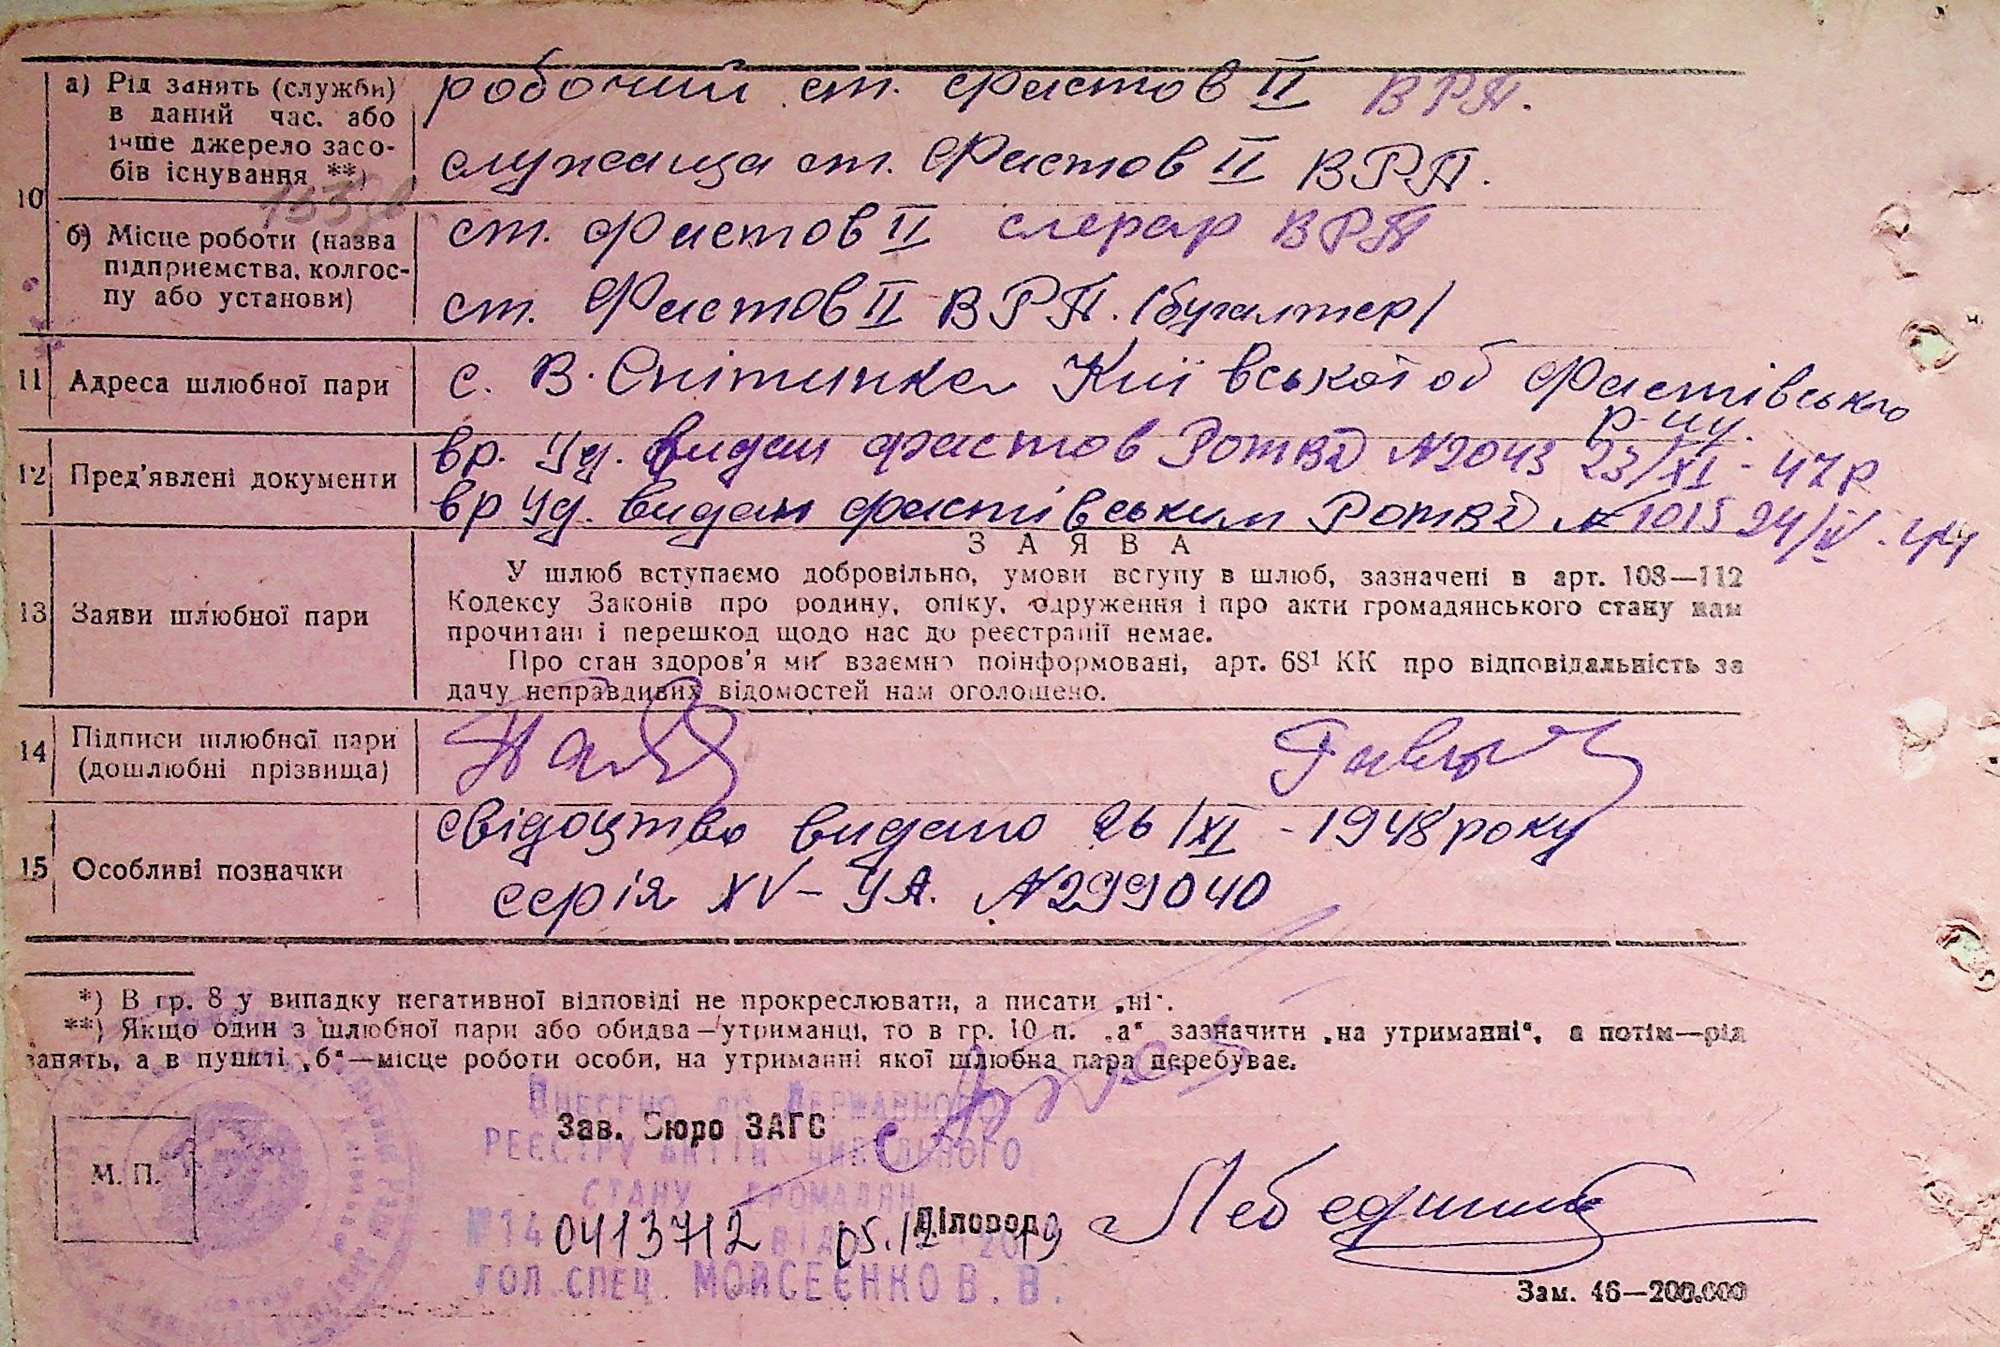 10
а) Рід занять (служби)
в даний час. або
інше джерело засо-
бів існування **)
робочий ст. Фастов II ВРП.
служаща ст. Фастов II ВРП.
б) Місце роботи (назва
підприємства, колгос-
пу або установи)
ст. Фастов II слюсар ВРП
ст. Фастов II ВРП. (бугалтер)
11 Адреса шлюбної пари
с. В. Снітинка Київської об Фастівського
р-ну.
12 Пред'явлені документи
вр. Уд. видан Фастов РОМВД №2043 23/XI - 47р
вр Уд. видан Фастівським РОМВД № 1015 24/IV - 44
13 Заяви шлюбної пари
ЗАЯВА
У шлюб вступаємо добровільно, умови вступу в шлюб, зазначені в арт. 108—112
Кодексу Законів про родину, опіку, одруження і про акти громадянського стану нам
прочитані і перешкод щодо нас до реєстрації немає.
Про стан здоров'я ми взаємно поінформовані, арт. 68¹ КК про відповідальність за
дачу неправдивих відомостей нам оголошено.
14 Підписи шлюбної пари
(дошлюбні прізвища)
15 Особливі позначки
свідоцтво видано 26/XI - 1948 року
серія XV - УА. №299040
*) В гр. 8 у випадку негативної відповіді не прокреслювати, а писати „ні".
**) Якщо один з шлюбної пари або обидва—утриманці, то в гр. 10 п. „а" зазначити „на утриманні", а потім—рід
занять, а в пункті „б"—місце роботи особи, на утриманні якої шлюбна пара перебуває.
М. П.
Зав. Бюро ЗАГС
Внесено до Державного
реєстру актів цивільного
стану громадян
№ 14 0413712 від 05.12 2019
Діловод
гол. спец. Мойсеєнко В. В.
Зам. 46—200.000